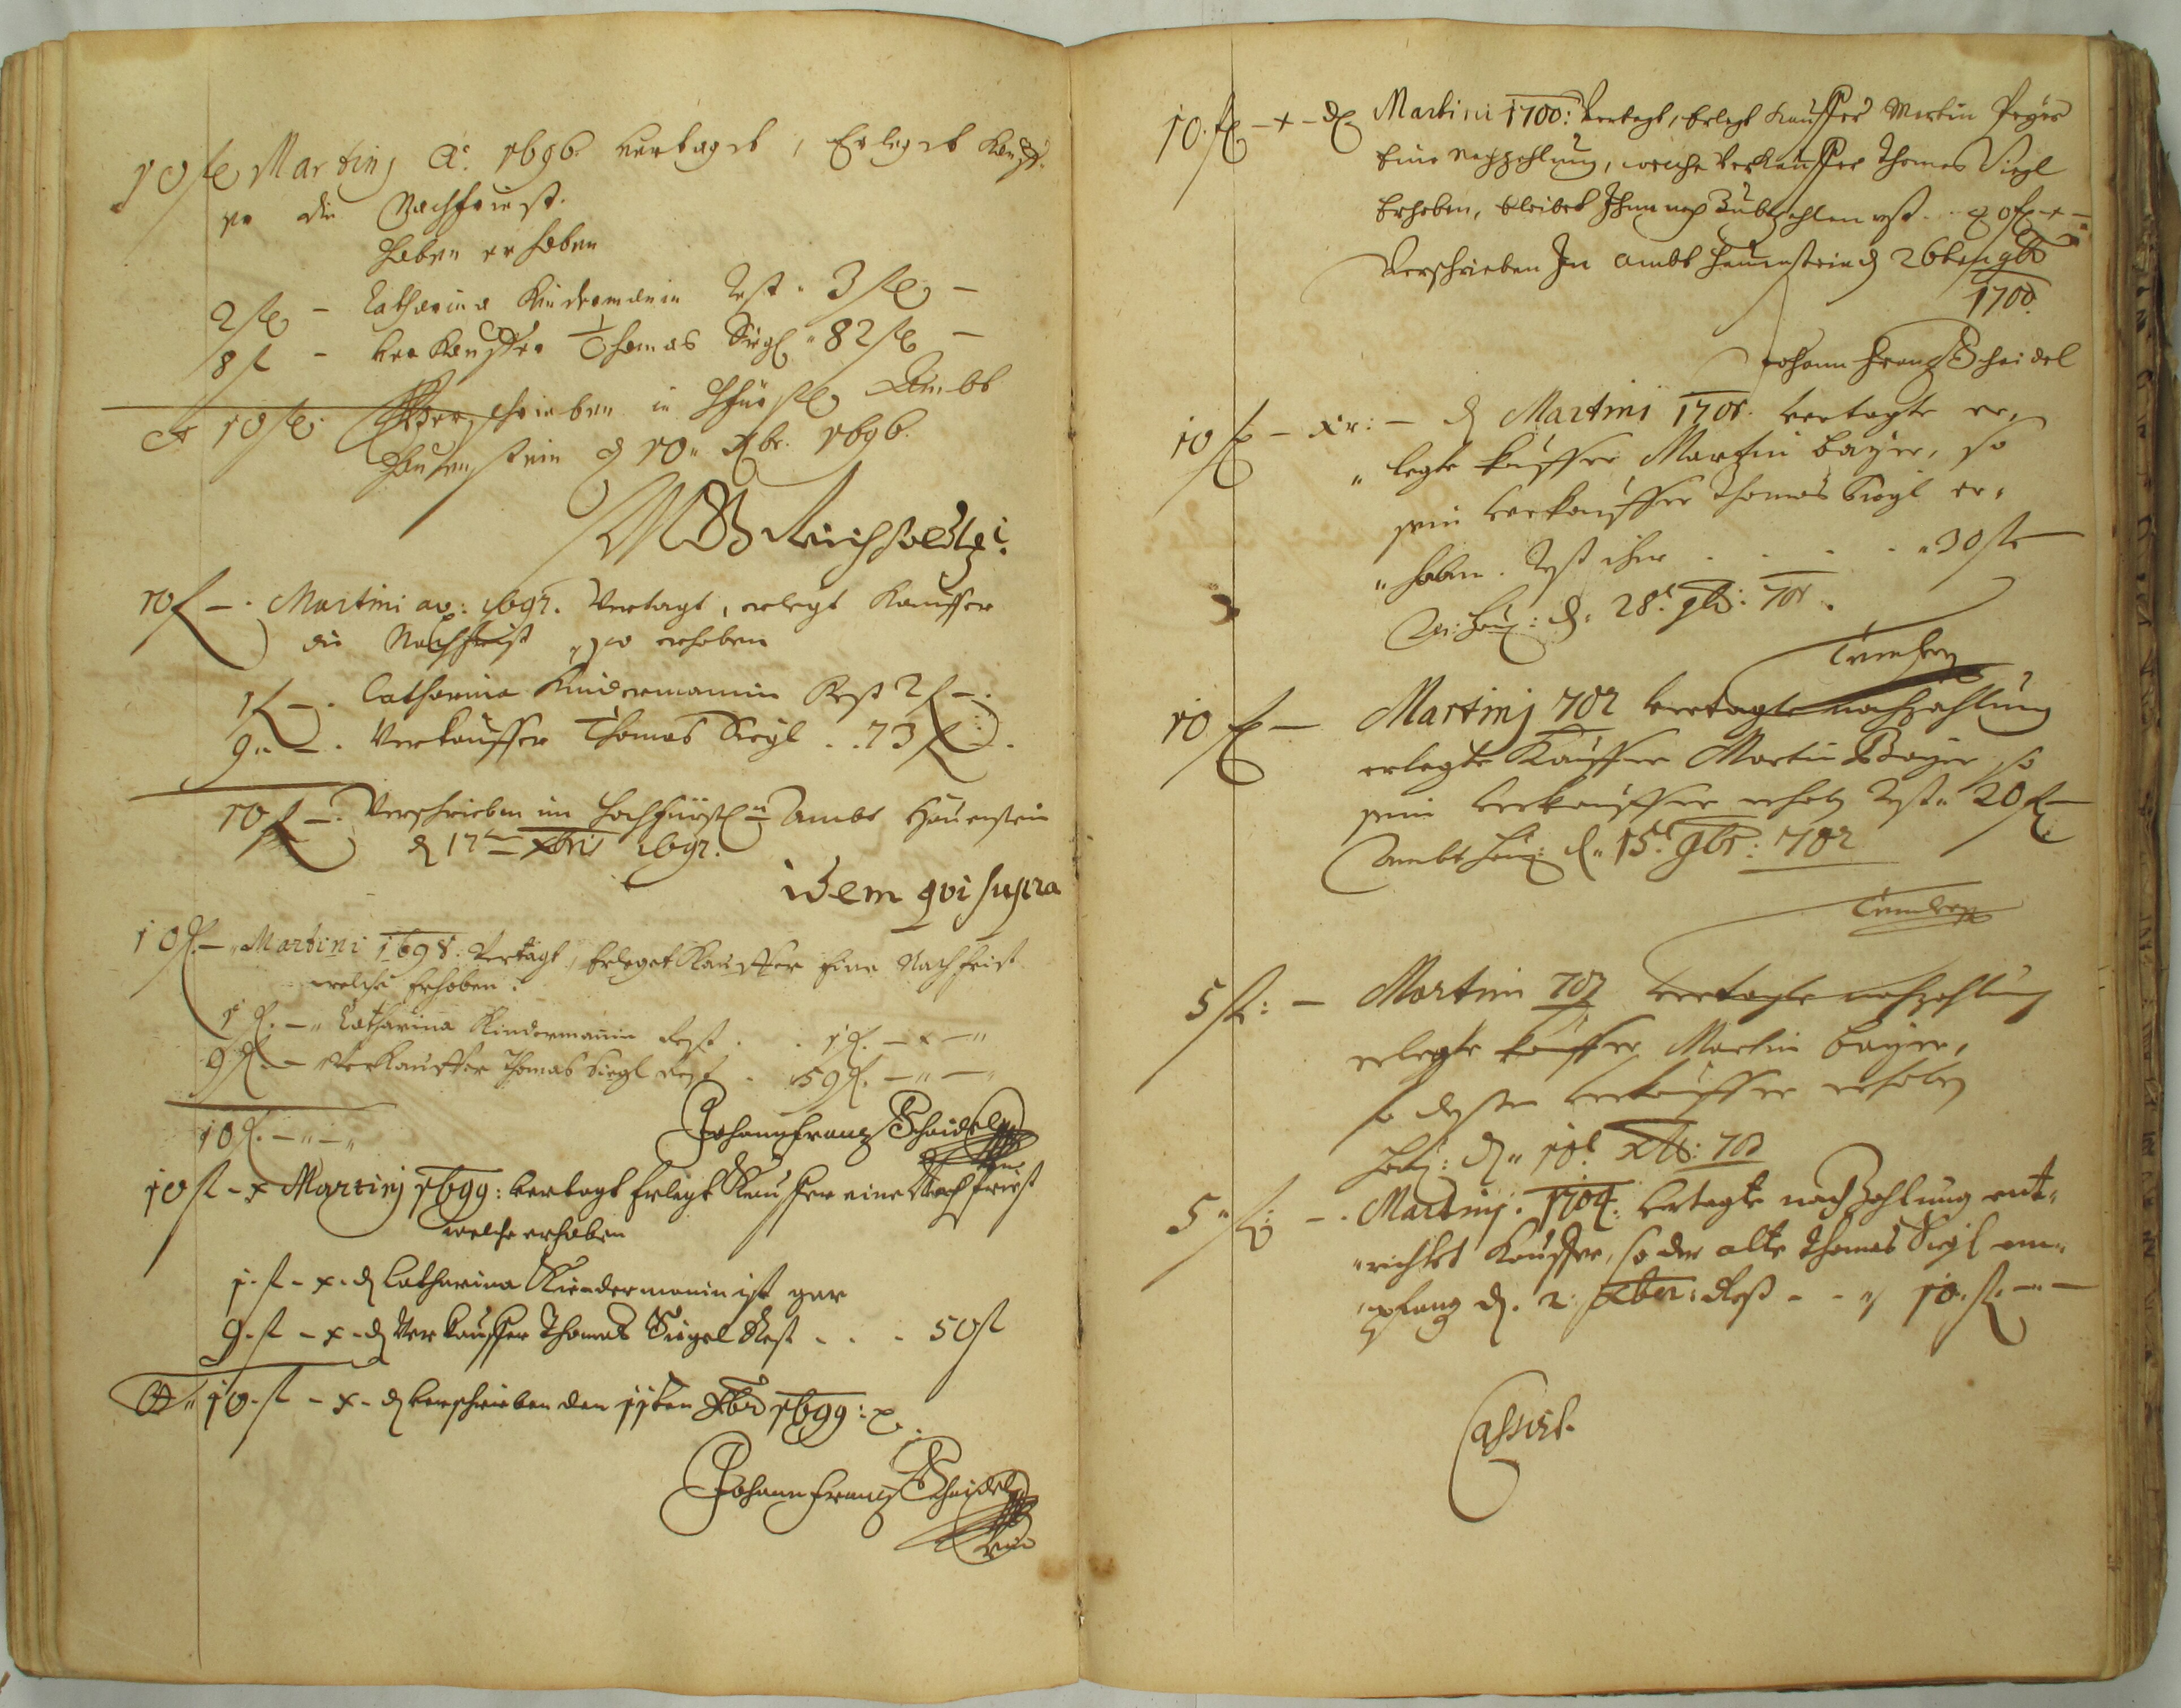 10 fl Martinj Ao. 1696 vertagdt, Erlegdt Kauff.
er die Nachfriest.
Haben erhoben
2 fl – Catharina Kindermanin Rest . 3 fl –
8 fl – verKauffer Thomas Siegl " 82 fl –
10 fl. Verschrieben in Hfürstl Ambt
Hauenstein d 10 " Xbr. 1696.
10 f – . Martini ao: 1697. Vertagt, erlegt Kauffer
die Nachfrist, so erhoben
1 f – . Catharina Kindermannin Rest 2 f – .
9 " – . Verkauffer Thomas Siegl . . 73 f – .
10 f – . Verschrieben im Hochfürstl n Ambt Hauenstein
d 17ten Xbris 1697.
idem qui supra
10 f. – " Martini 1698. Vertagt, Erleget Kauffer Eine Nachfrist
welche Erhoben .
1 f. – " Catharina Kindermanin Rest . . 1 f. – x – "
9 f. – VerKauffer Thomas Siegl Rest . 59 f. – " –
10 f. – " – "
Johann Frantz Schaidel
10 fl – x Martinj 1699: vertagt Erlegt Kauffer eine Nachfriest
welche erhoben
1 . fl – x – d Catharina Kindermanin ist gar
9 . fl – x – d Verkauffer Thomas Siegel Rest . . . 50 fl
10 . fl – x – d Verschrieben den 11ten Xbr 1699:
Johann Frantz Schaidel
10 . fl – x – d Martini 1700: Vertagt, Erlegt Kauffer Martin Peyer
Eine Nachzahlung, welche Verkauffer Thomas Siegl
Erhoben, bleibet Ihme noch Zubezahlen rest . . 40 fl – x –
Verschrieben Im Ambt Hauenstein d 26ten 9br
1700.
Johann Frantz Schaidel
10 fl – xr: – d Martini 1701. vertagte er,
" legte Kauffer Martin Bayer, so
sein Verkauffer Thomas Siegl er,
" haben . Rest ihm . . . . " 30 fl –
Hau: d. 28t 9br: 701.
10 fl – Martinj 702 vertagte nachzahlung
erlegte Kauffer Martin Bayer, so
sein Verkauffer erhoben Rest " 20 f –
Ambt Hau: d " 15t 9br: 702
5 fl: – Martini 703 vertagte nachzahlung
erlegte Kauffer Martin Bayer,
so dessen Verkauffer erhoben
Hau: d " 10t Xbr: 703
5 " fl: – . Martinj. 1704: Vertagte nachzahlung ent,
" richtet Kauffer, so der alte Thomas Siegl em,
" pfang d. 2: Xber: Rest – – " 10 . fl. – " –
Cassirt.